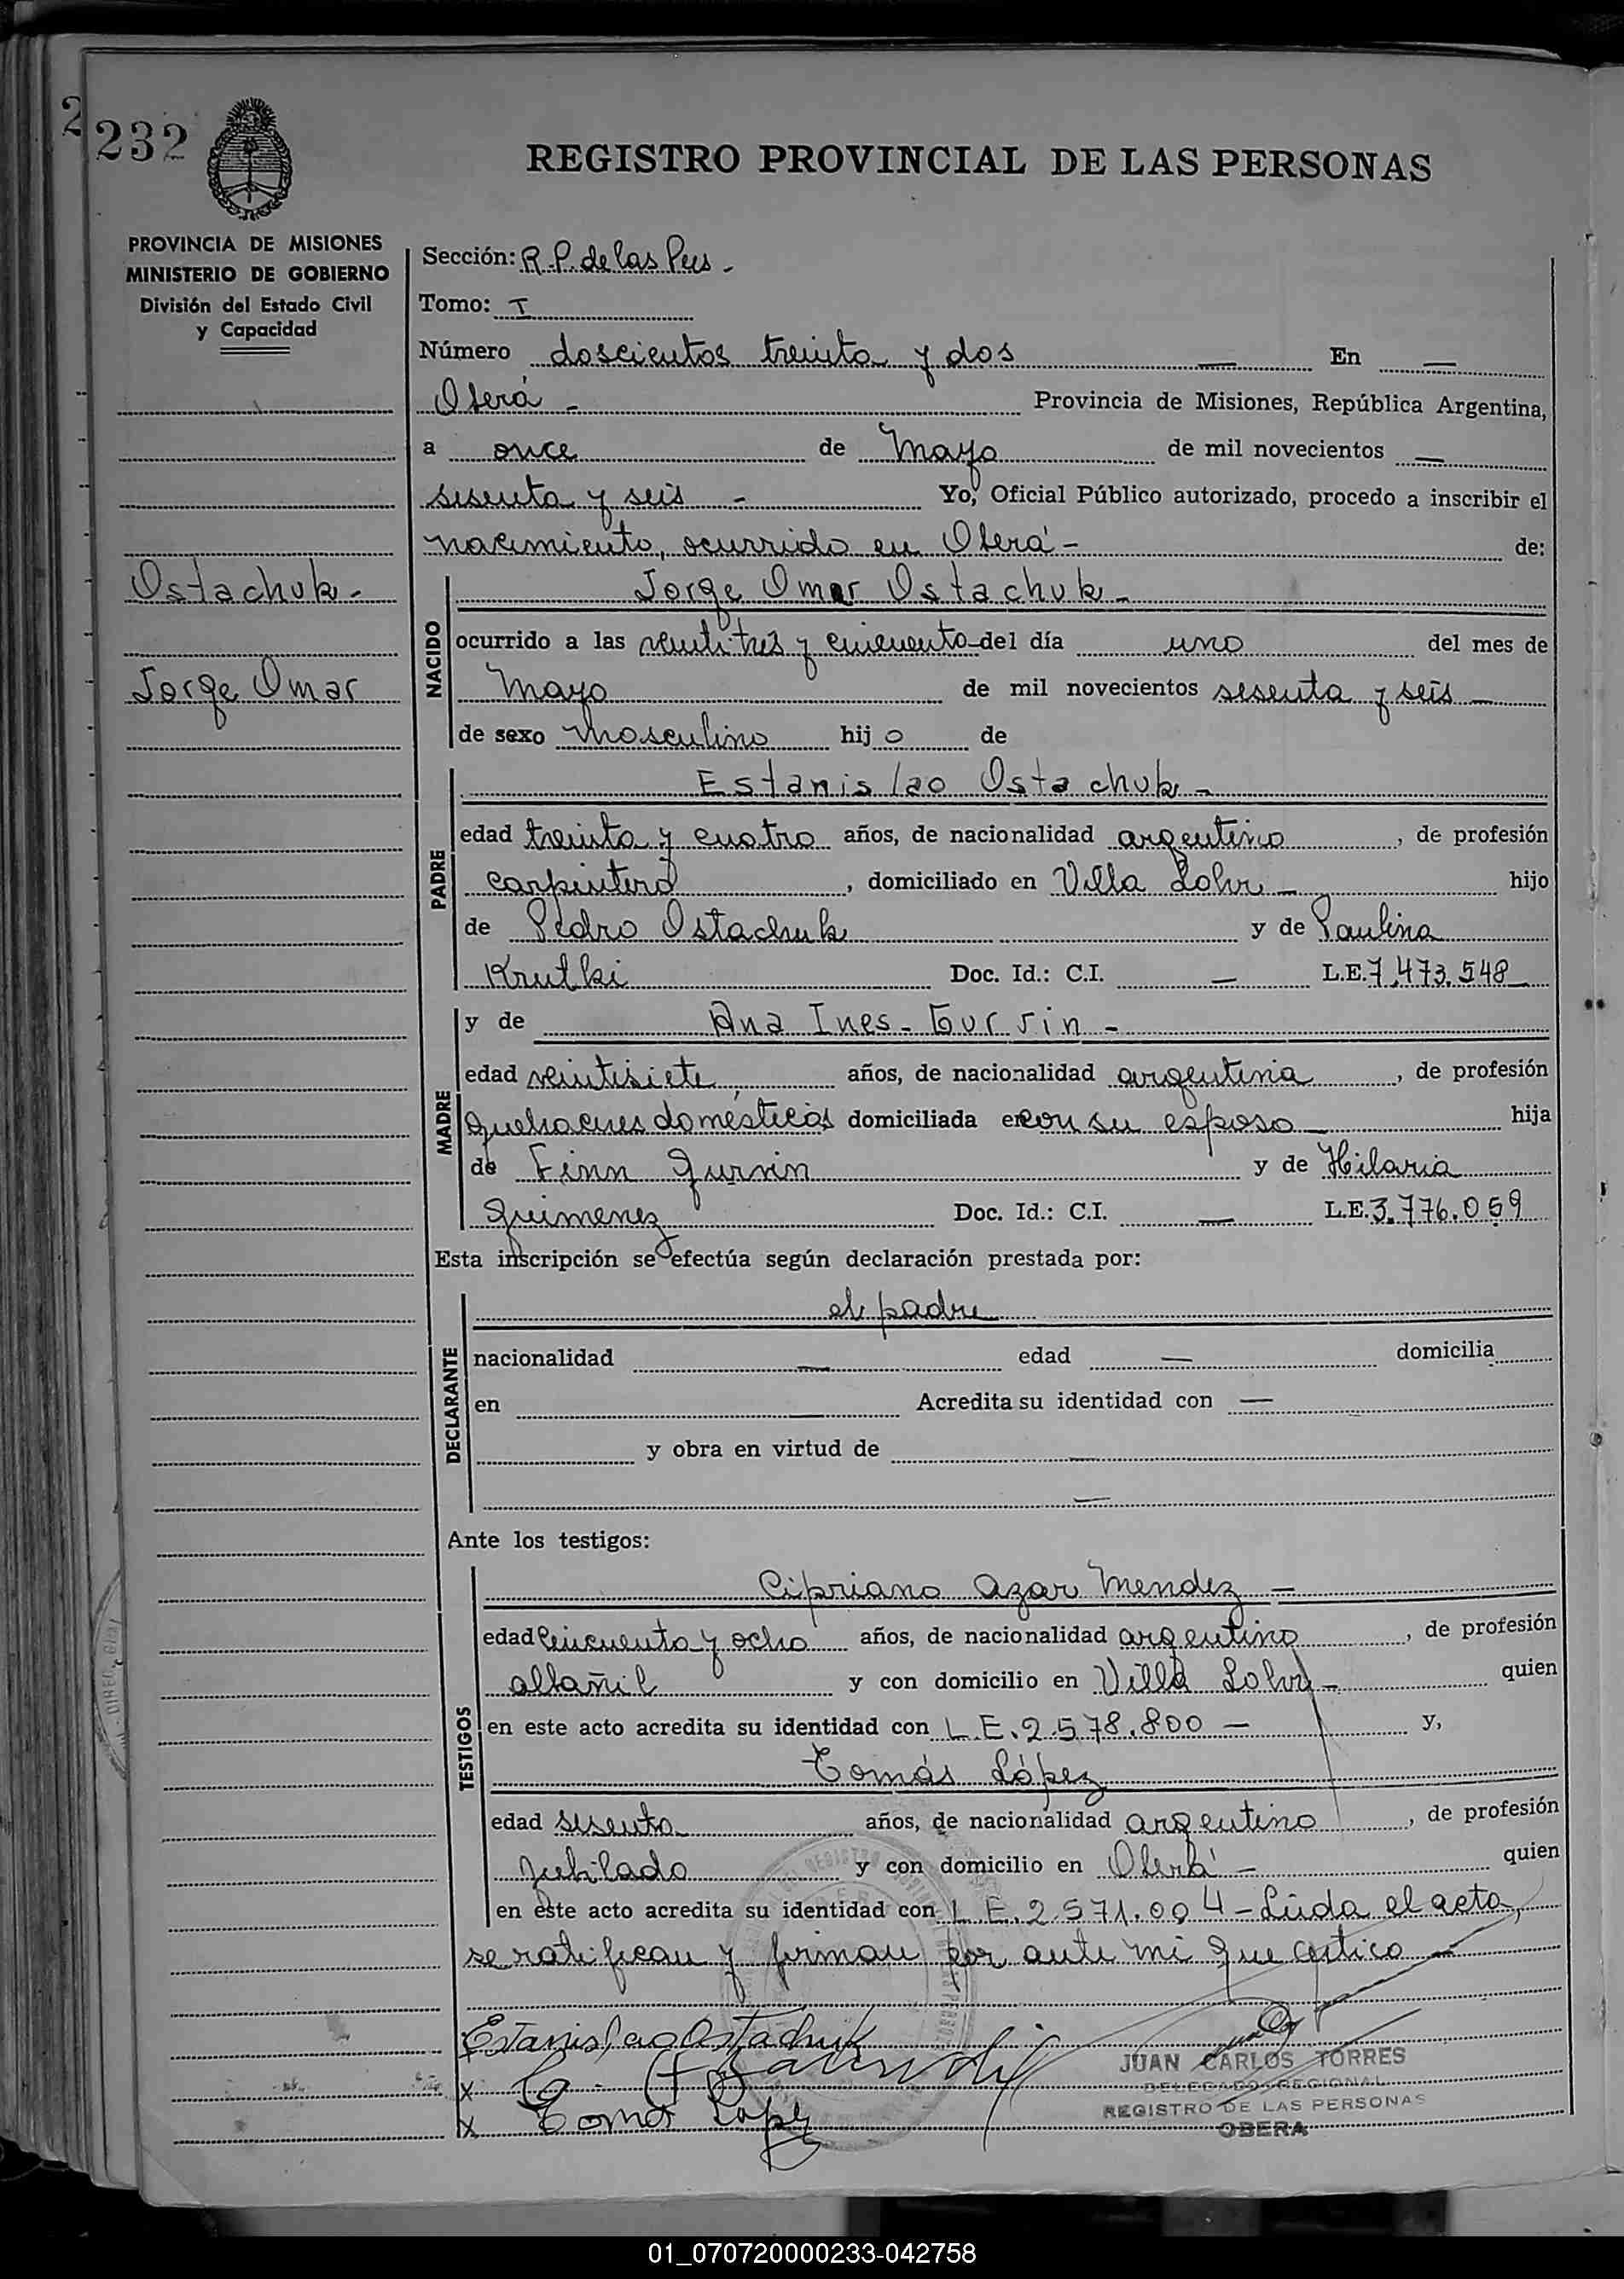 232
REGISTRO PROVINCIAL DE LAS PERSONAS
PROVINCIA DE MISIONES
MINISTERIO DE GOBIERNO
División del Estado Civil
y Capacidad
Sección: R.P. de las Pers -
Tomo: I
Número doscientos treinta y dos — En —
Oberá - Provincia de Misiones, República Argentina,
a once de Mayo de mil novecientos —
sesenta y seis - Yo, Oficial Público autorizado, procedo a inscribir el
nacimiento, ocurrido en Oberá - de:
Ostachuk -
Jorge Omar
NACIDO
Jorge Omar Ostachuk -
ocurrido a las veintitres y cincuenta del día uno del mes de
Mayo de mil novecientos sesenta y seis —
de sexo Masculino hijo de
PADRE
Estanislao Ostachuk -
edad treinta y cuatro años, de nacionalidad argentino, de profesión
carpintero, domiciliado en Villa hijo
de Pedro Ostachuk y de Paulina
Krutki Doc. Id.: C.I. — L.E. 7.473.548
MADRE
y de Ana Ines - Gurrin -
edad veintisiete años, de nacionalidad argentina, de profesión
quehaceres domésticos domiciliada en con su esposo hija
de Finn Gurrin y de Hilaria
Guimenez Doc. Id.: C.I. — L.E. 3.776.059
Esta inscripción se efectúa según declaración prestada por:
DECLARANTE
el padre
nacionalidad — edad — domicilia
en — Acredita su identidad con —
y obra en virtud de —
—
Ante los testigos:
TESTIGOS
Cipriano Azar Mendez —
edad cincuenta y ocho años, de nacionalidad argentino, de profesión
albañil y con domicilio en Villa quien
en este acto acredita su identidad con L.E. 2.578.800 — y,
Tomás López
edad sesenta años, de nacionalidad argentino, de profesión
jubilado y con domicilio en Oberá - quien
en este acto acredita su identidad con L.E. 2.571.004 - Leida el acta,
se ratifican y firman por ante mi que certico —
Estanislao Ostachuk
x
x Tomas Lopez
JUAN CARLOS TORRES
DELEGADO REGIONAL
REGISTRO DE LAS PERSONAS
OBERA
01_070720000233-042758